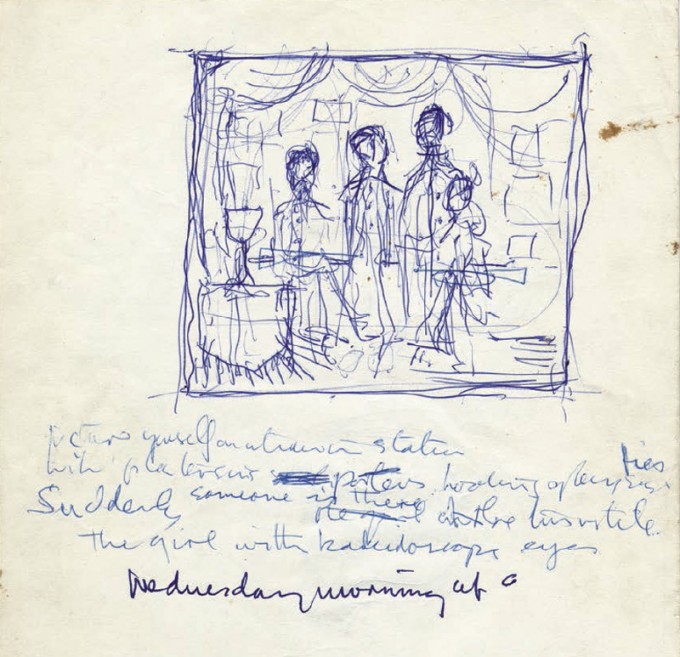 picture yourself on a train in station
with plasticine porters looking glass ties
Suddenly someone is there at the turnstile
the girl with kaleidoscope eyes
Wednesday morning at